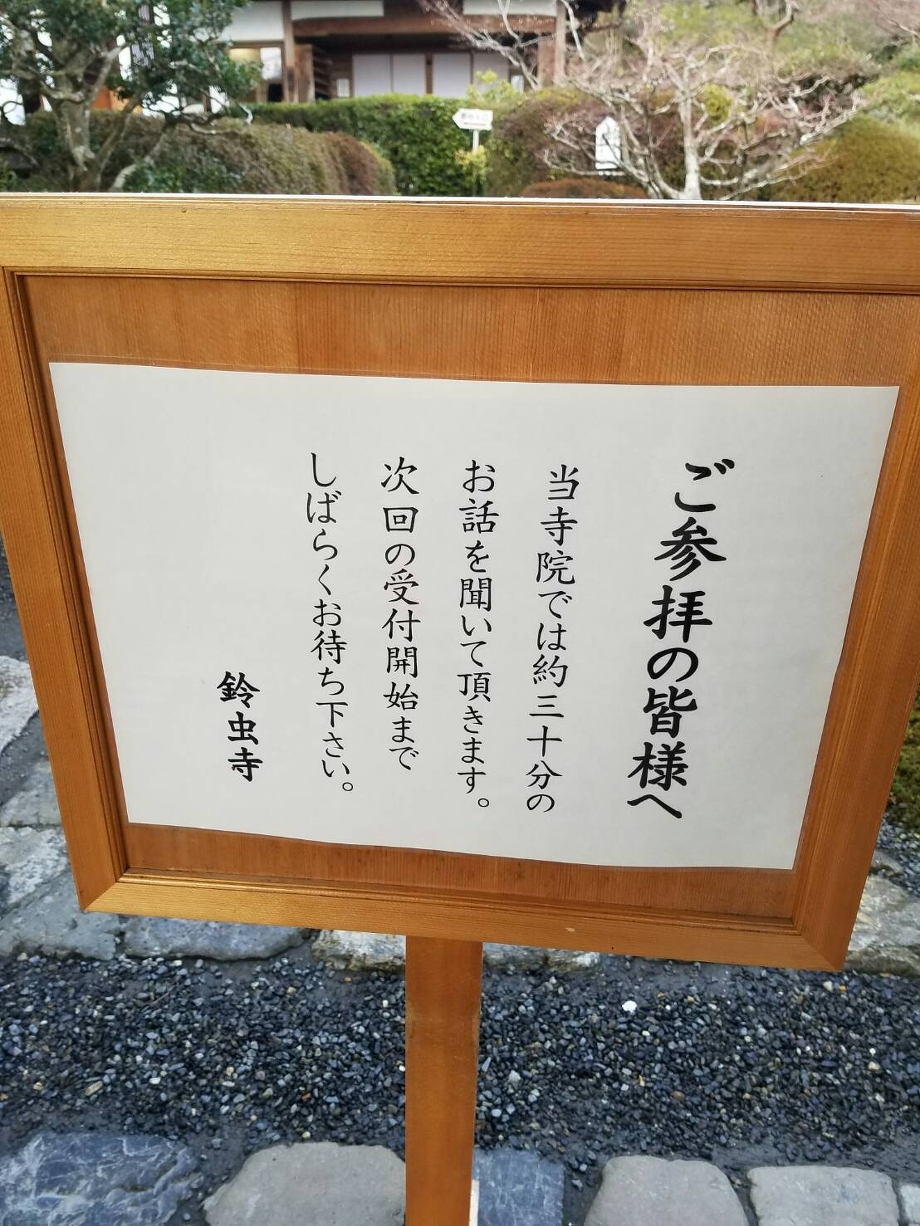 ご参拝の皆様へ
当寺院では約三十分の
お話を聞いて頂きます。
次回の受付開始まで
しばらくお待ち下さい。
鈴虫寺